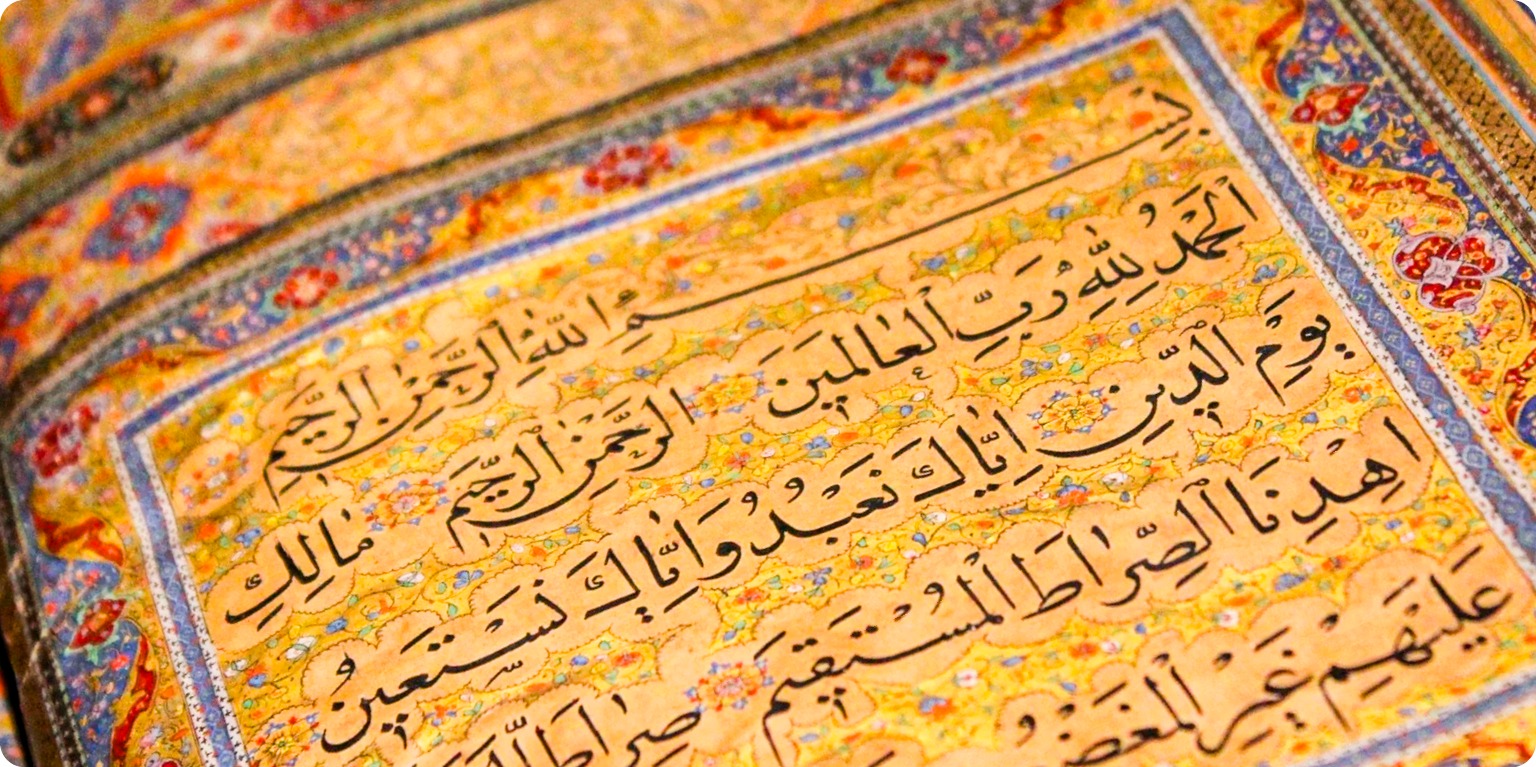 بِسْمِ اللّٰهِ الرَّحْمٰنِ الرَّحِيمِ
اَلْحَمْدُ لِلّٰهِ رَبِّ الْعَالَمِينَ الرَّحْمٰنِ الرَّحِيمِ مَالِكِ
يَوْمِ الدِّينِ اِيَّاكَ نَعْبُدُ وَاِيَّاكَ نَسْتَعِينُ
اِهْدِنَا الصِّرَاطَ الْمُسْتَقِيمَ صِرَاطَ
عَلَيْهِمْ غَيْرِ